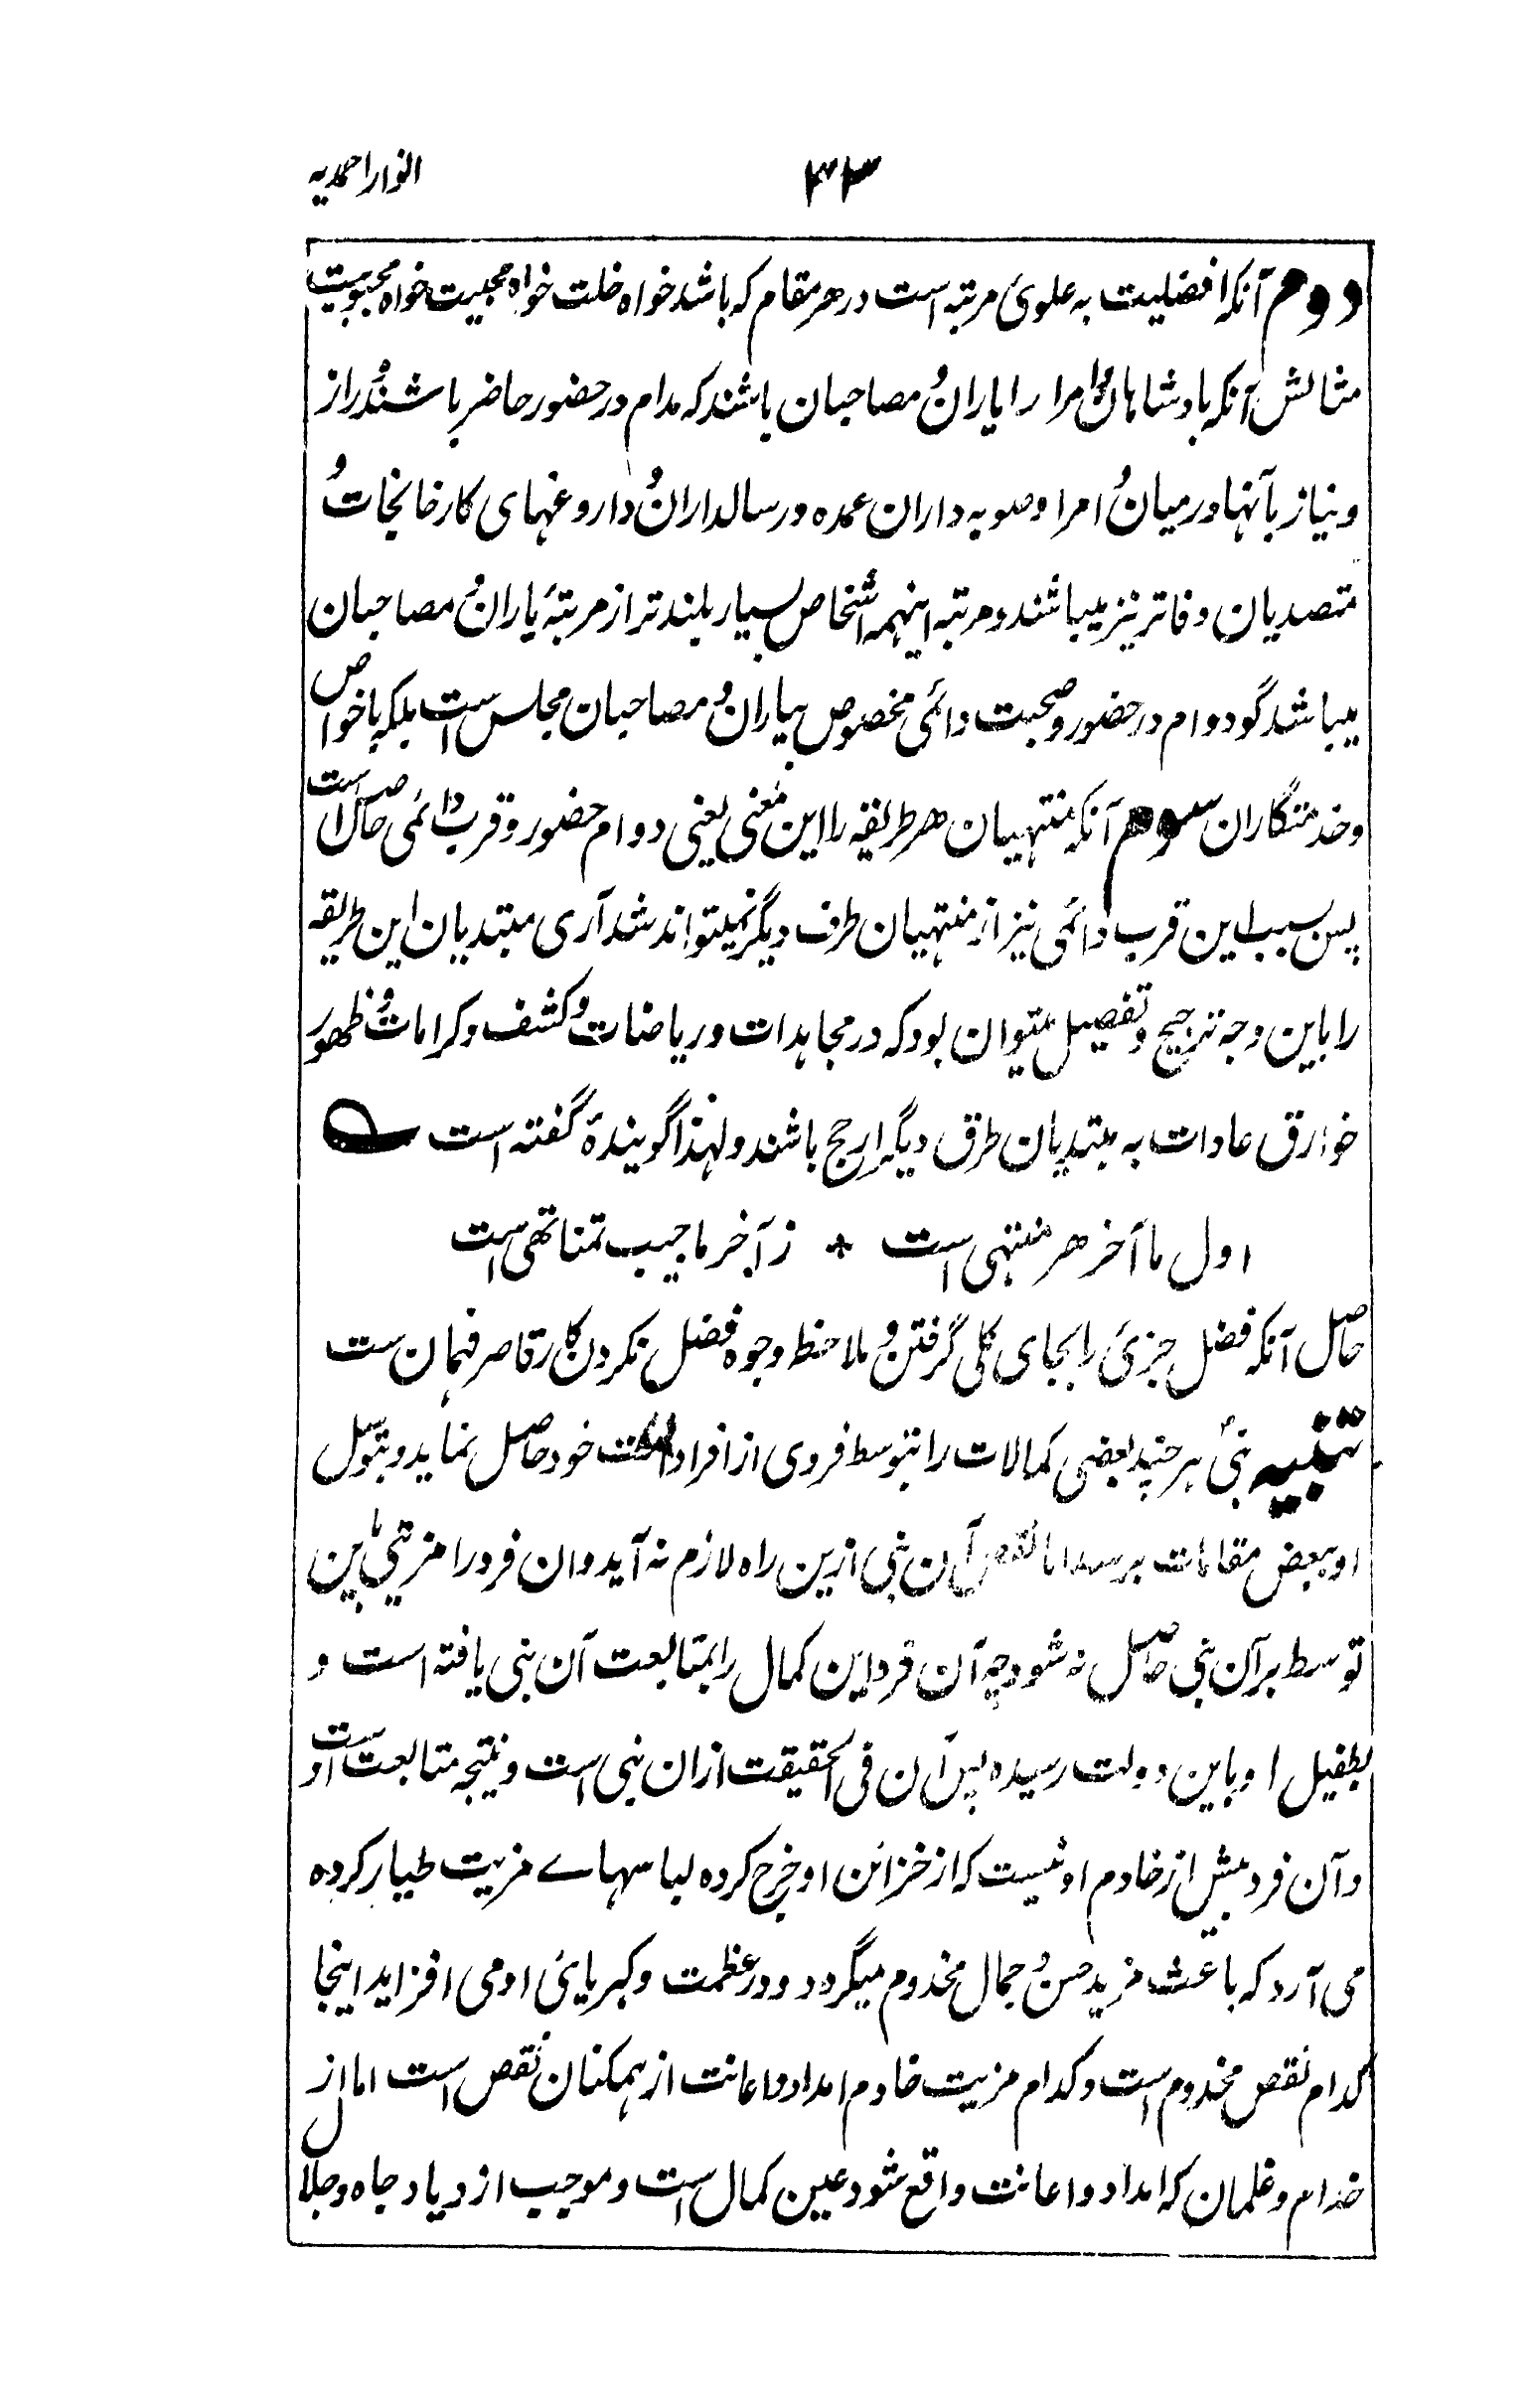 ۳۳ انوار احمدیه
دوم آنکه افضلیت به علوی مرتبه است در هر مقام که باشد خواه خلت خواه محبیت خواه محبوبیت
مثالش آنکه بادشاهان و امرا را یاران و مصاحبان باشند که مدام در حضور حاضر باشند و راز
و نیاز بآنها درمیان و امرا و صوبه داران عمده و رسالداران و داروغهای کارخانجات و
متصدیان دفاتر نیز میباشند و مرتبه اینهمه اشخاص بسیار بلندتر از مرتبهٔ یاران و مصاحبان
میباشد گو دوام در حضور و صحبت دائمی مخصوص بیاران و مصاحبان مجلس است بلکه باخواص
و خدمتگاران سوم آنکه منتهیان هر طریقه را این معنی یعنی دوام حضور و قرب دائمی حاصل است
پس بسبب این قرب دائمی نیز از منتهیان طرف دیگر نمیتواند شد آری مبتدیان این طریقه
را باین وجه ترجیح و تفصیل میتوان بود که در مجاهدات و ریاضات و کشف و کرامات و ظهور
خوارق عادات به مبتدیان طرق دیگر ارجح باشند و لهذا گویندهٔ گفته است ؎
اول ما آخر هر منتهی است * ز آخر ما جیب تمنا تهی است
حاصل آنکه فضل جزئی را بجای کلی گرفتن و ملاحظ وجوه فضل نکردن کار قاصر فهمان ست
تنبیه نبیؐ هر چند بعضی کمالات را بتوسط فردی از افراد امت خود حاصل نماید و بتوسل
او ببعض مقامات برسد اما نقص آن نبی ازین راه لازم نه آید و ان فرد را مزیتی باین
توسط بر آن نبی حاصل نه شود چه آن فرد این کمال را بمتابعت آن نبی یافته است و
بطفیل او باین دولت رسیده پس آن فی الحقیقت ازان نبی است و نتیجه متابعت او است
و آن فرد بیش از خادم او نیست که از خزائن او خرج کرده لباسهاے مزیت طیار کرده
می آرد که باعث مزید حسن و جمال مخدوم میگردد و در عظمت و کبریائی او می افزاید اینجا
کدام نقص مخدوم است و کدام مزیت خادم امداد و اعانت از همکنان نقص است اما از
خدام و غلمان که امداد و اعانت واقع شود عین کمال است و موجب ازدیاد جاه و جلال